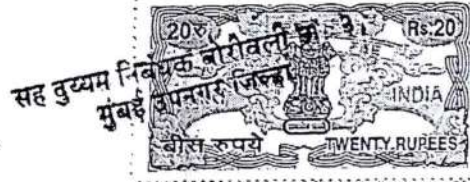 20रु Rs.20
सह दुय्यम निबंधक बोरीवली क्र. ३।
मुंबई उपनगर जिल्हा
INDIA
बीस रुपये TWENTY RUPEES